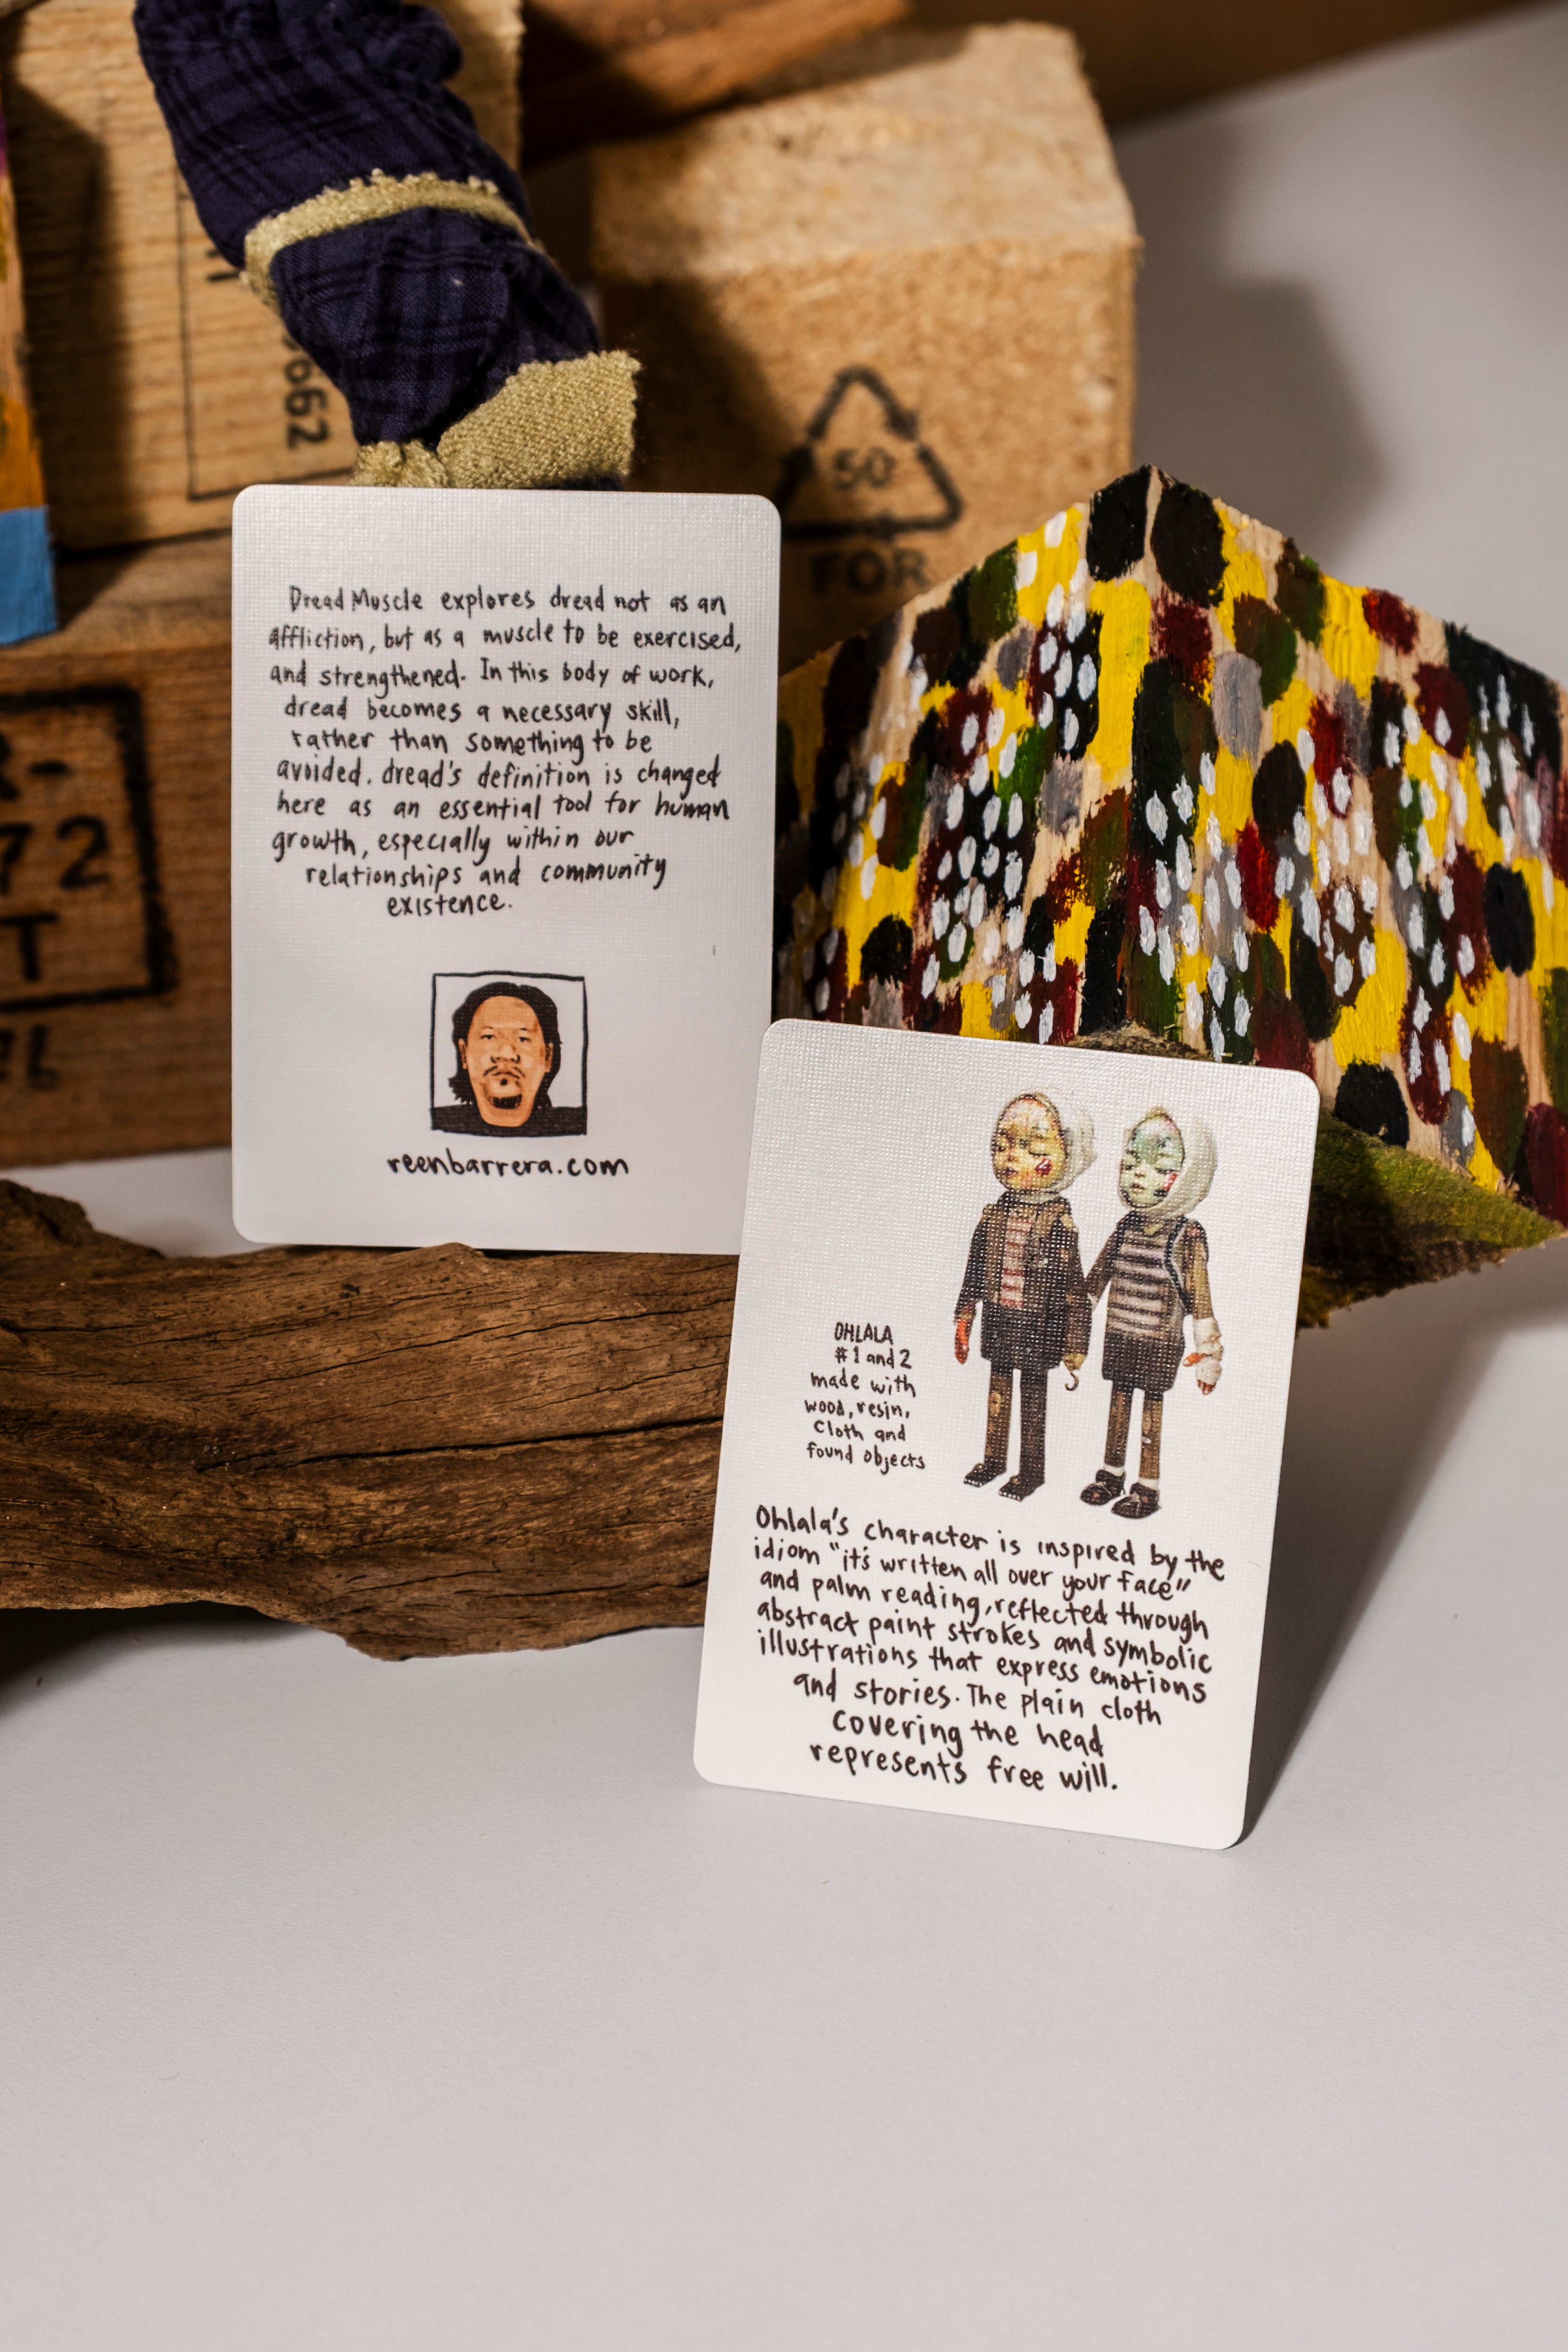 Dread Muscle explores dread not as an
affliction, but as a muscle to be exercised,
and strengthened. In this body of work,
dread becomes a necessary skill,
rather than something to be
avoided. dread's definition is changed
here as an essential tool for human
growth, especially within our
relationships and community
existence.
reenbarrera.com
OHLALA
#1 and 2
made with
wood, resin,
cloth and
found objects
Ohlala's character is inspired by the
idiom "it's written all over your face"
and palm reading, reflected through
abstract paint strokes and symbolic
illustrations that express emotions
and stories. The plain cloth
covering the head
represents free will.
50
FOR